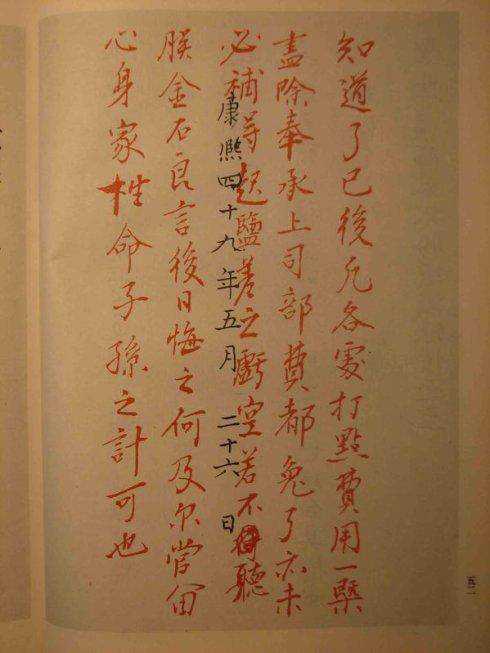 知道了已後凡各處打點費用一槩
盡除奉承上司部費都免了亦未
必補得起鹽差之虧空若不聽
康熈四十九年五月 二十六 日
朕金石良言後日悔之何及尔當留
心身家性命子孫之計可也
五二